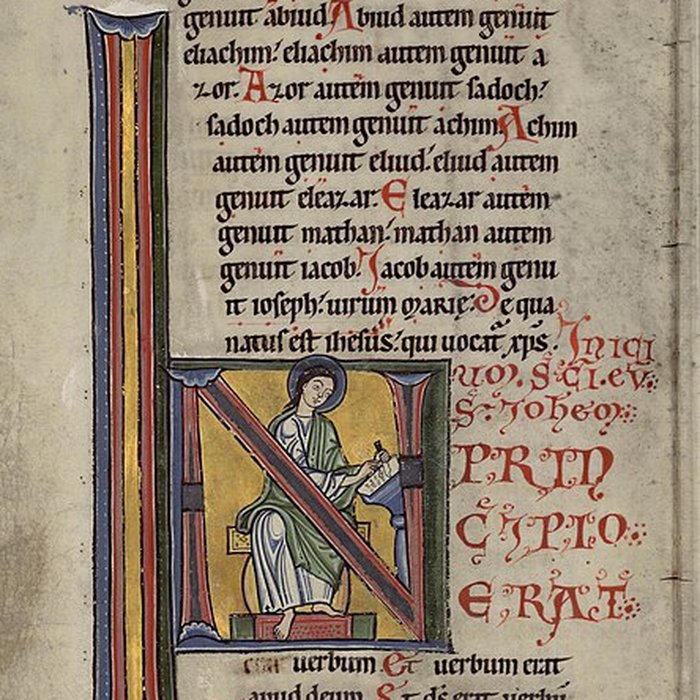 genuit abiud. Abiud autem genuit
eliachim. eliachim autem genuit a
zor. Azor autem genuit sadoch.
sadoch autem genuit achim. Achim
autem genuit eliud. eliud autem
genuit eleazar. Eleazar autem
genuit mathan. mathan autem
genuit iacob. Jacob autem genu
it ioseph. uirum marie. De qua
natus est ihesus. qui uocat xps. Inici
um. s. ci. ev
s. Iohem
IN
PRIN
CIPIO
ERAT
uerbum Et uerbum erat
apud deum. Et ds erat uerbu